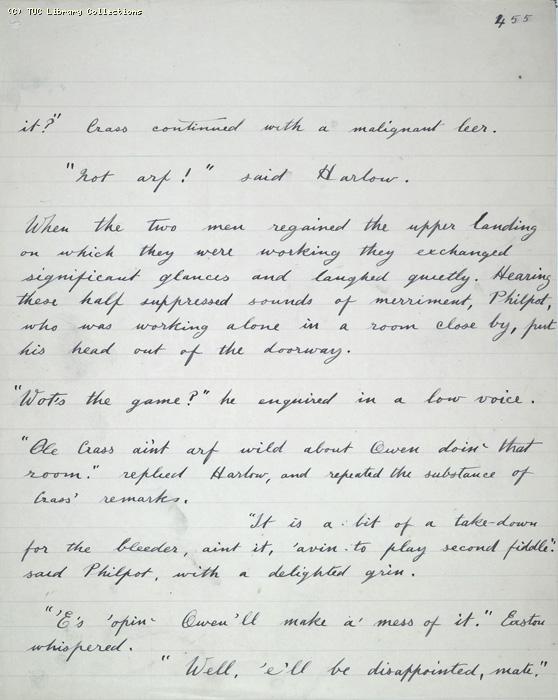 (C) TUC Library Collections
455
it?" Crass continued with a malignant leer.
"Not arf!" said Harlow.
When the two men regained the upper landing
on which they were working they exchanged
significant glances and laughed quietly. Hearing
these half suppressed sounds of merriment, Philpot,
who was working alone in a room close by, put
his head out of the doorway.
"Wot's the game?" he enquired in a low voice.
"Ole Crass ain't arf wild about Owen doin' that
room." replied Harlow, and repeated the substance of
Crass' remarks.
"It is a bit of a take-down
for the bleeder, aint it, 'avin to play second fiddle".
said Philpot, with a delighted grin.
"'E's 'opin' Owen'll make a mess of it." Easton
whispered.
"Well, 'e'll be disappointed, mate."